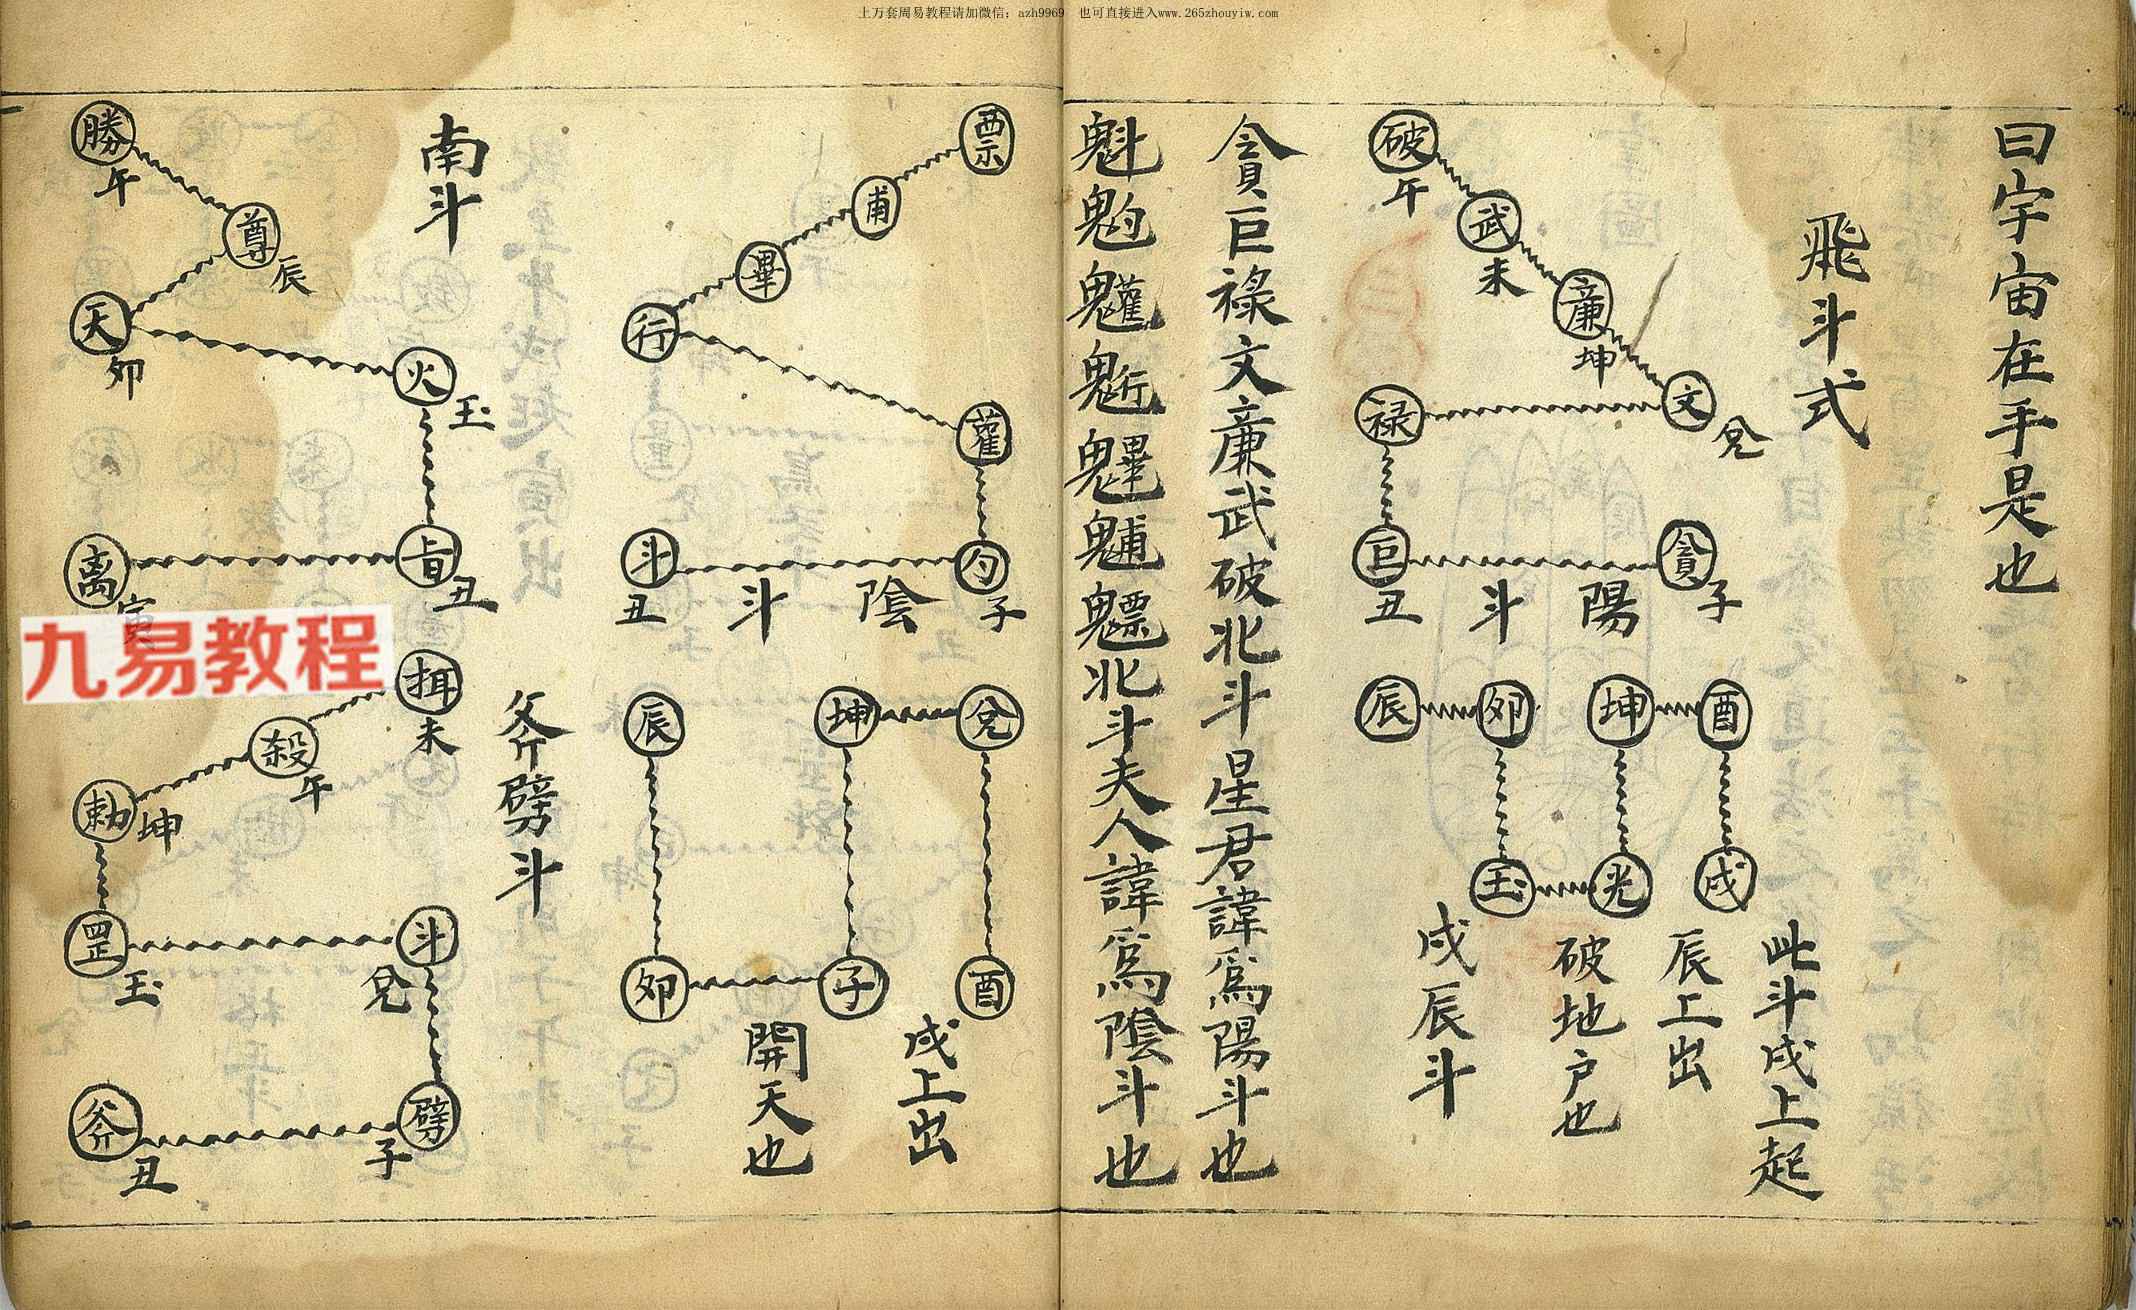 上万套周易教程请加微信：azh9969 也可直接进入www.265zhouyiw.com
曰宇宙在手是也
飛斗式
破 午
武 未
廉 坤
文 兌
禄
巨 丑
貪 子
陽斗
酉 坤 卯 辰
戌 光 玉
此斗戌上起
辰上出
破地户也
戌辰斗
貪巨祿文廉武破北斗星君諱爲陽斗也
魁䰢魓北斗夫人諱爲陰斗也
票
甫
畢
行
雚
勺 子
斗 丑
陰斗
兌 坤 辰
酉 子 卯
戌上出
開天也
南斗
勝 午
尊 辰
天 卯
火 玉
旨 丑
离 寅
斧劈斗
揖 未
殺 午
勅 坤
罡 玉
斗 兌
劈 子
斧 丑
九易教程